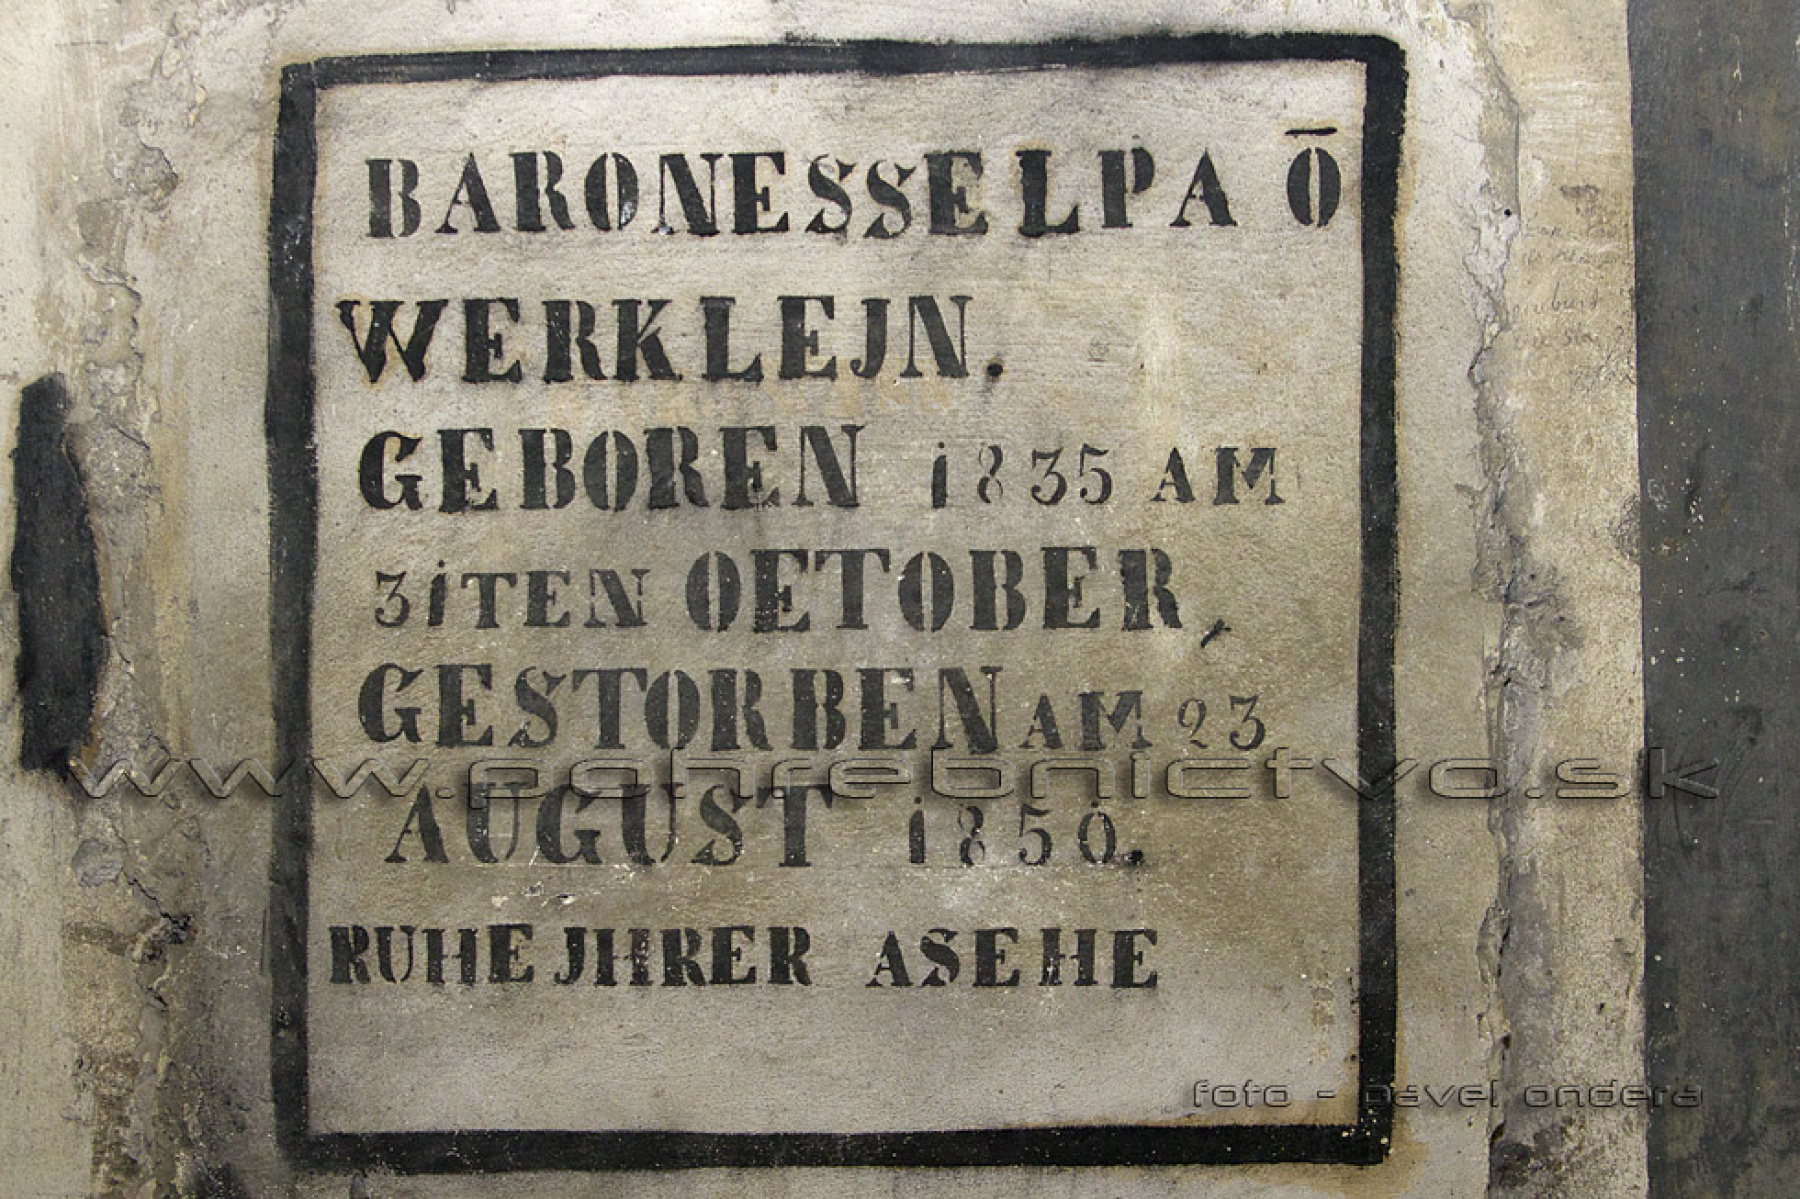 BARONESSE LPA Ō
WERKLEJN.
GEBOREN 1835 AM
31TEN OETOBER,
GESTORBEN AM 23
AUGUST 1850.
RUHE JHRER ASEHE
www.pohrebnictvo.sk
foto - pavel ondera